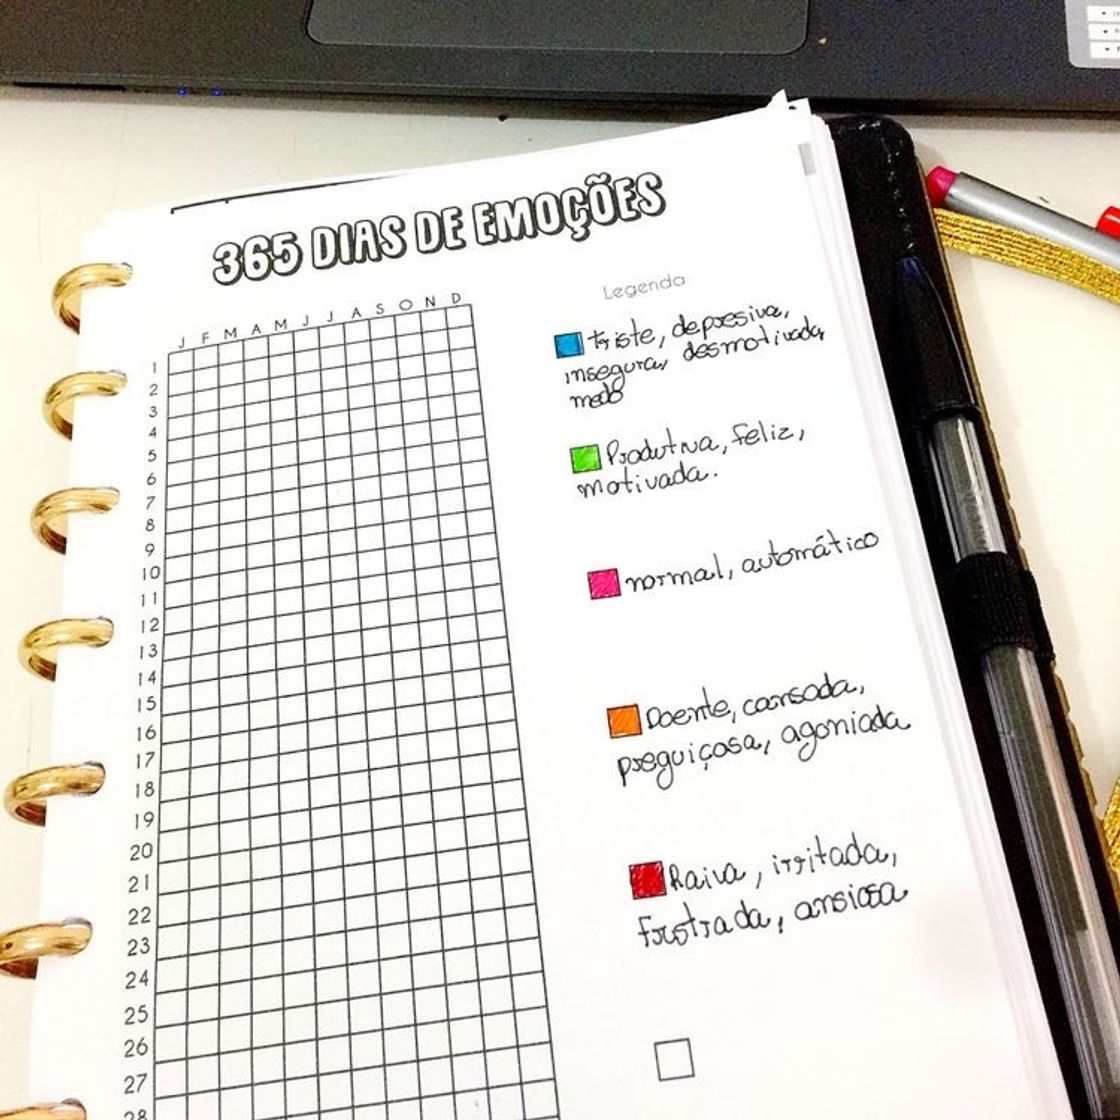 365 DIAS DE EMOÇÕES
Legenda
J F M A M J J A S O N D
1
2
3
4
5
6
7
8
9
10
11
12
13
14
15
16
17
18
19
20
21
22
23
24
25
26
27
28
triste, depresiva,
insegura, desmotivada,
medo
Produtiva, feliz,
motivada.
normal, automático
Doente, cansada,
preguiçosa, agoniada
Raiva, irritada,
frustrada, ansiosa